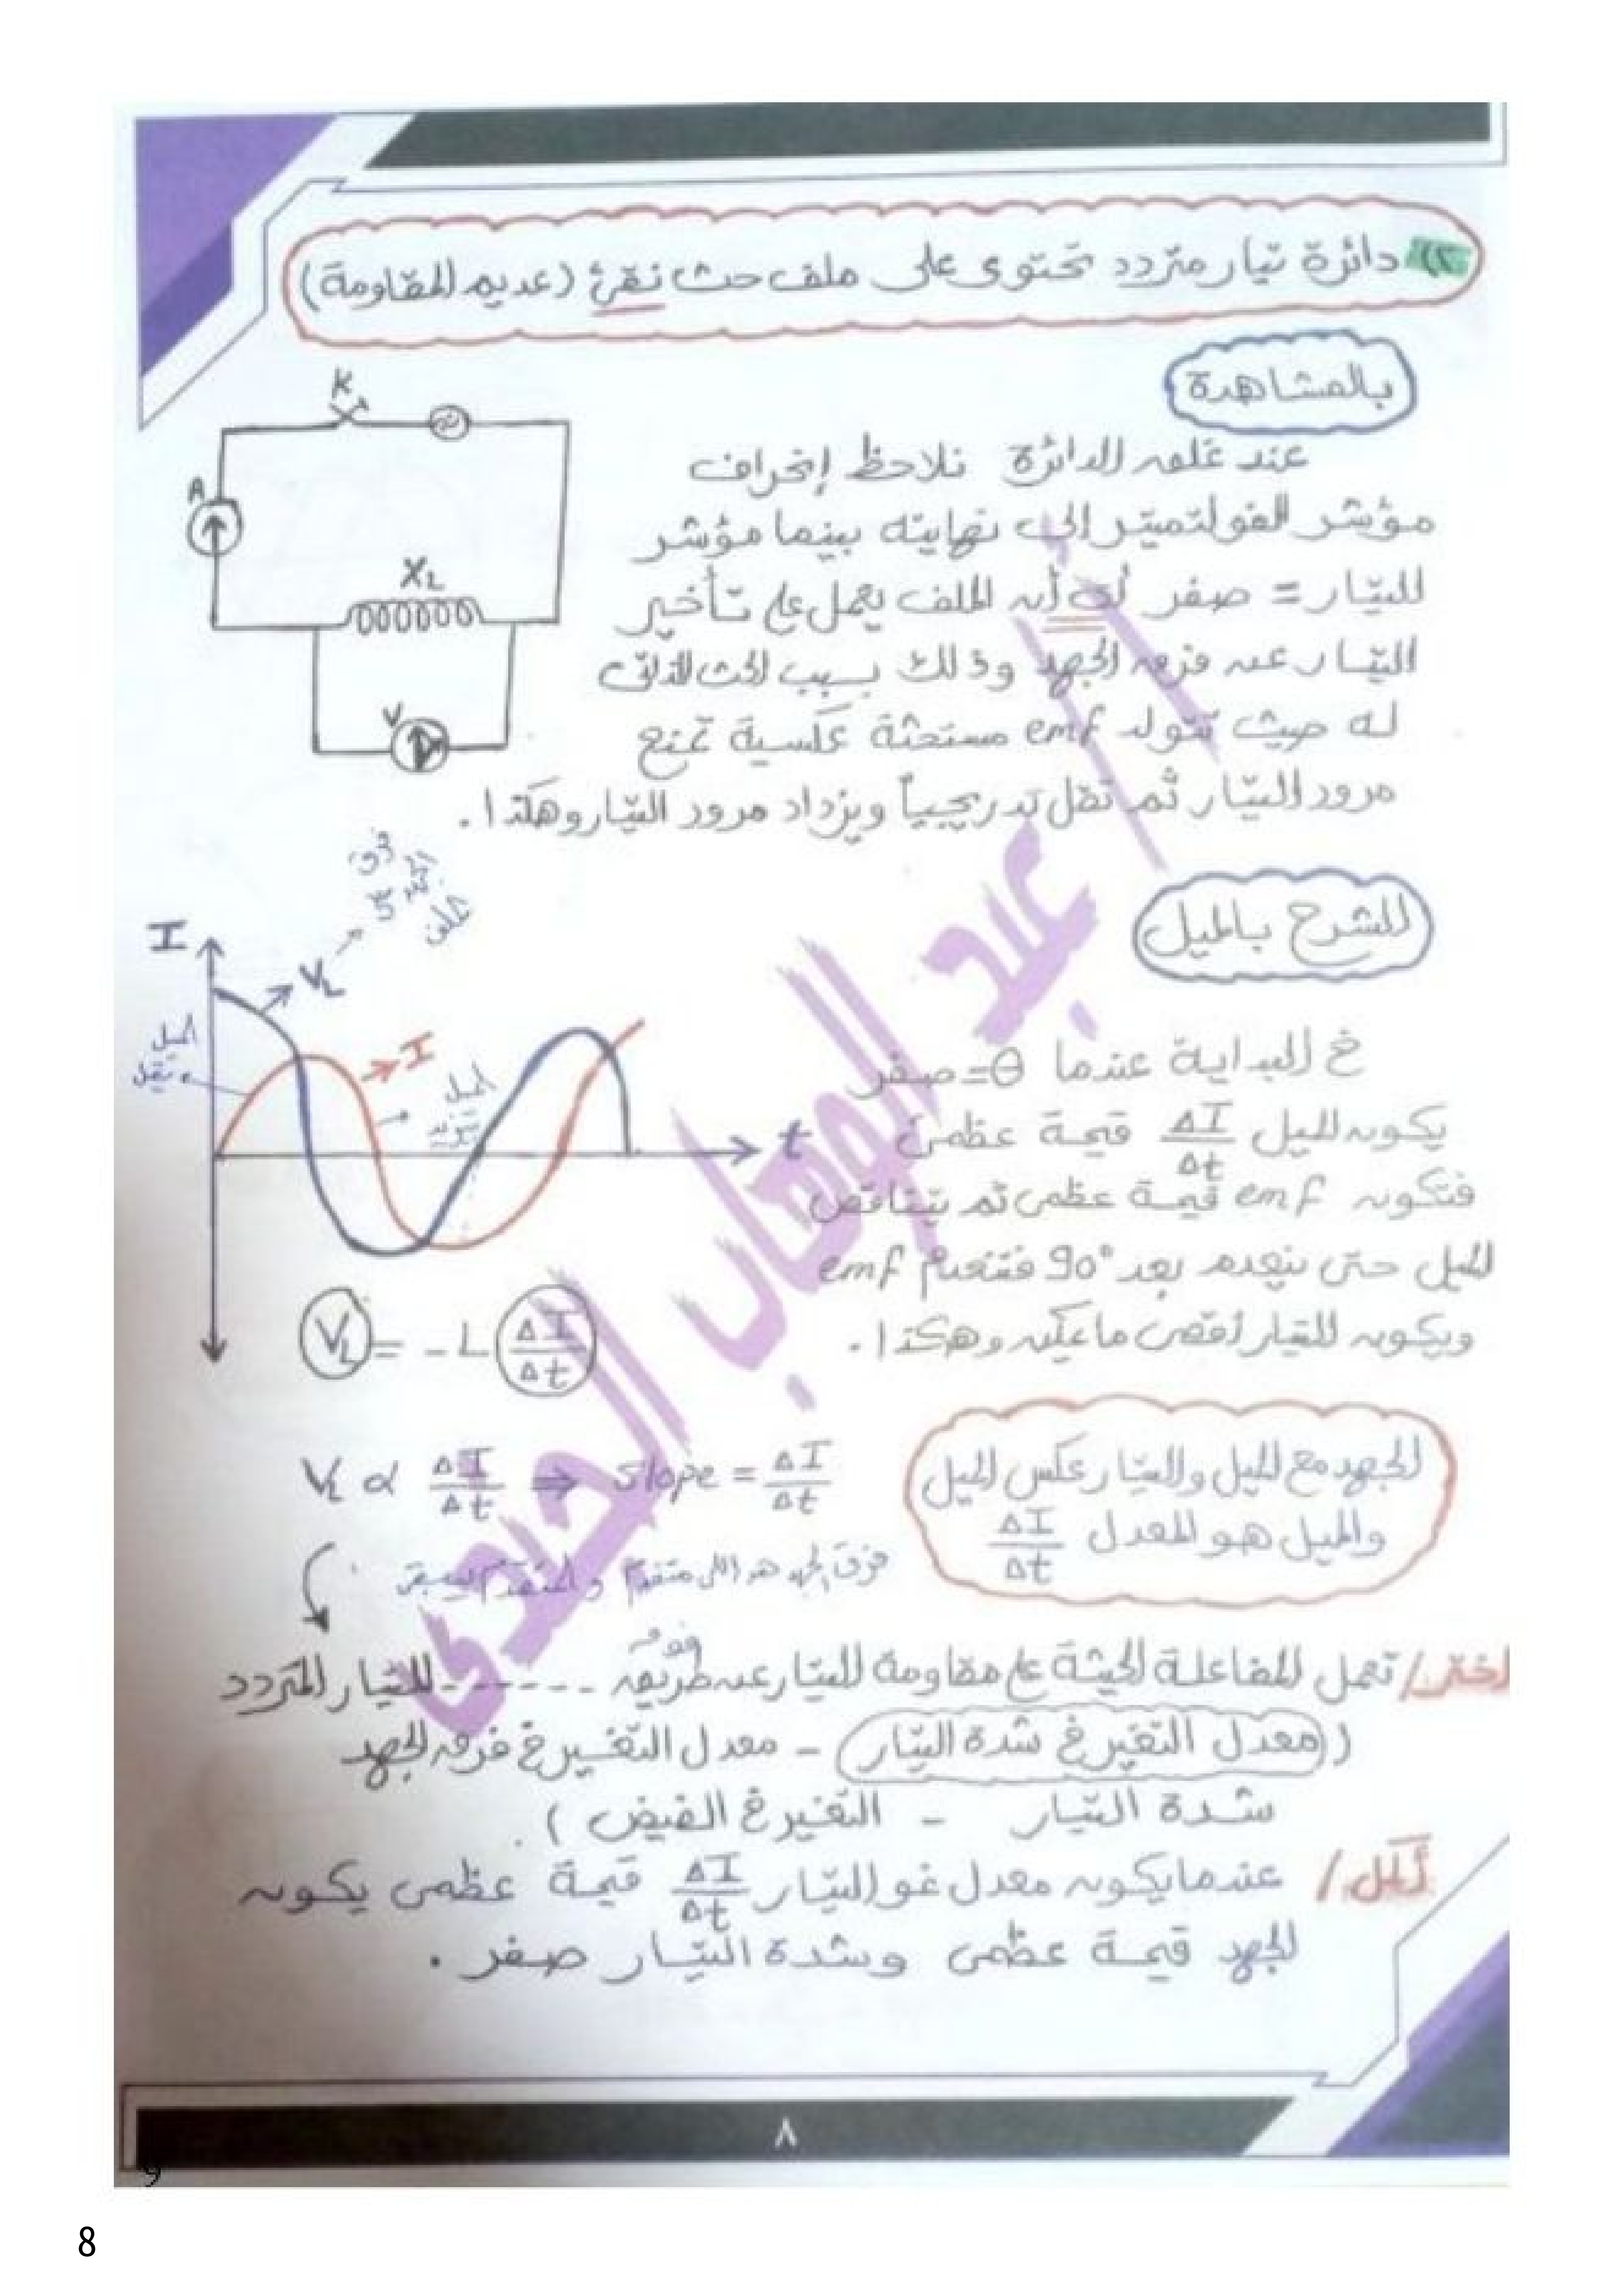 (٢) دائرة تيار متردد تحتوى على ملف حث نقى (عديم المقاومة)
بالمشاهدة
عند غلق الدائرة نلاحظ إنحراف
مؤشر الفولتميتر إلى نهايته بينما مؤشر
التيار = صفر أى أن الملف يعمل على تأخير
التيار عن فرق الجهد وذلك بسبب الحث الذاتى
له حيث تتولد emf مستحثة عكسية تمنع
مرور التيار ثم تقل تدريجياً ويزداد مرور التيار وهكذا.
K
A
XL
V
الشرح بالميل
فى البداية عندما θ = صفر
يكون الميل ΔI/Δt قيمة عظمى
فتكون emf قيمة عظمى ثم يتناقص
الميل حتى ينعدم بعد 90° فتنعدم emf
ويكون التيار أقصى ما يمكن وهكذا.
I
VL
فرق
الجهد
ملف
I
الميل
يقل
الميل
يزيد
t
VL = - L ΔI/Δt
VL α ΔI/Δt ⇒ slope = ΔI/Δt
فرق الجهد هو اللى متقدم والمتقدم يسبق
الجهد مع الميل والتيار عكس الميل
والميل هو المعدل ΔI/Δt
اختر/ تعمل المفاعلة الحثية على مقاومة التيار عن طريق ------ للتيار المتردد
(معدل التغير فى شدة التيار - معدل التغير فى فرق الجهد
شدة التيار - التغير فى الفيض)
أكمل/ عندما يكون معدل نمو التيار ΔI/Δt قيمة عظمى يكون
الجهد قيمة عظمى وشدة التيار صفر.
أ/ عبد الوهاب
٨
9
8